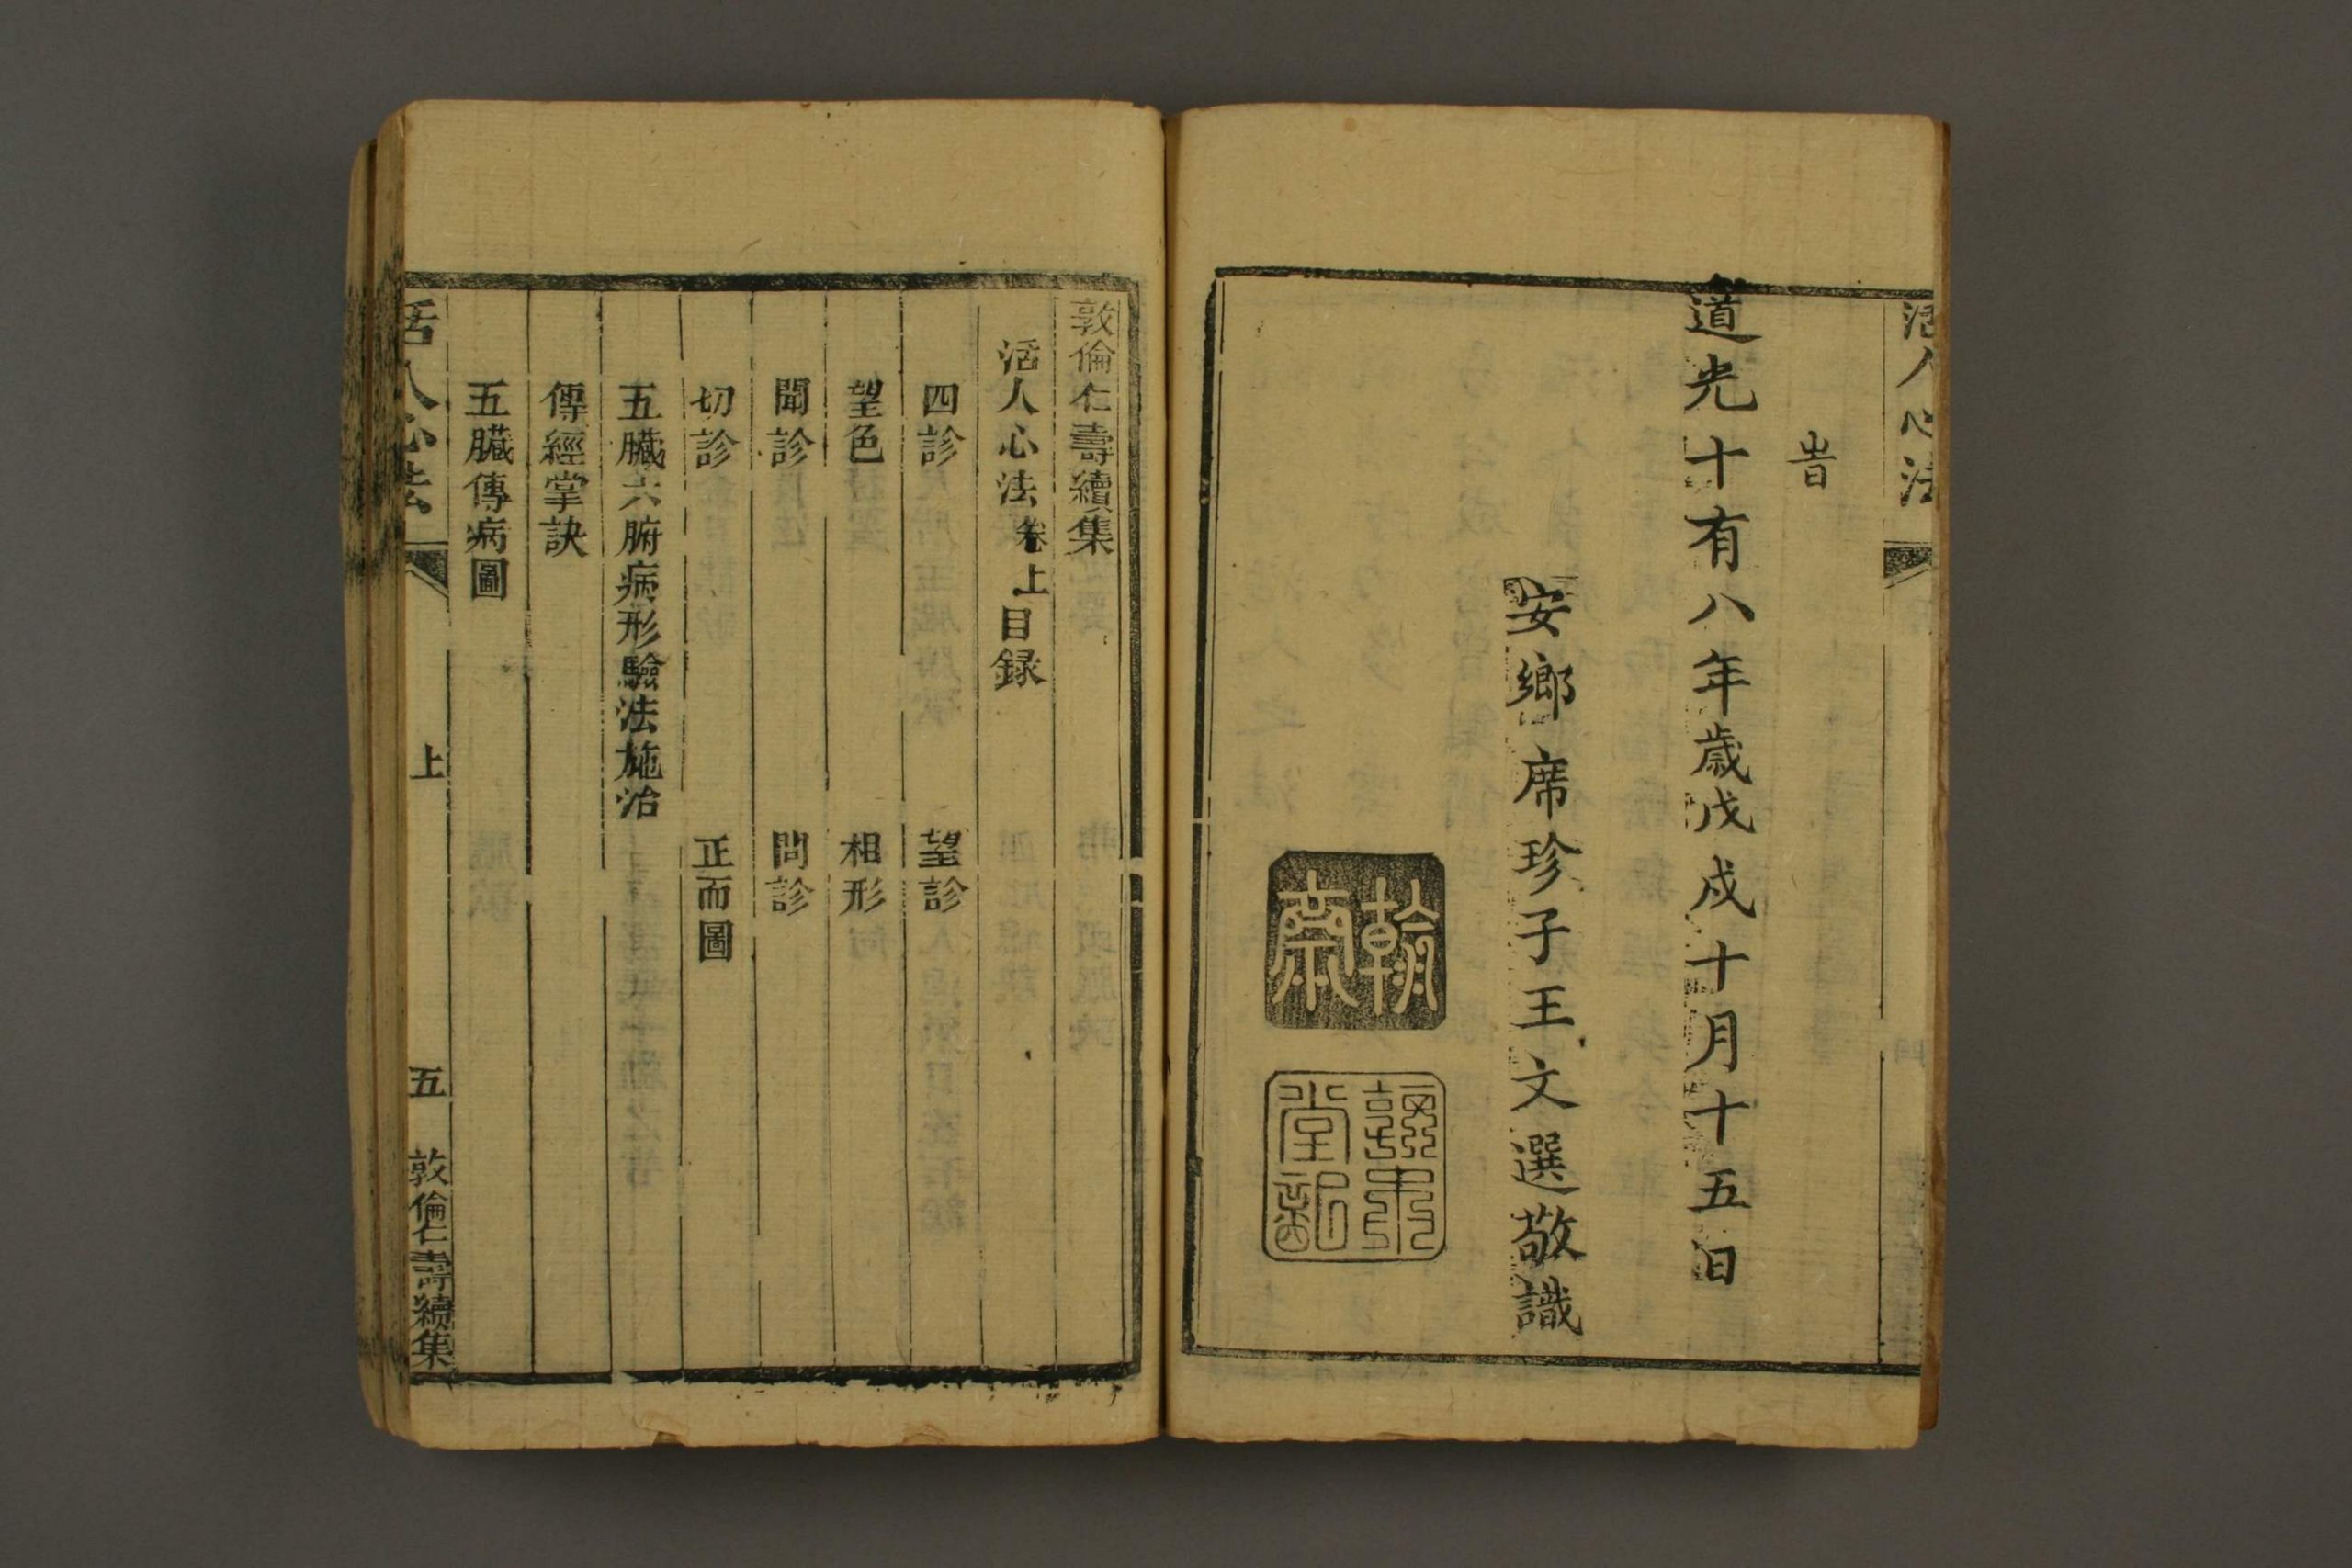 活人心法
旹
道光十有八年歲戊戌十月十五日
安鄉席珍子王文選敬識
翰齋
堂記
敦倫仁壽續集
活人心法卷上目録
四診
望診
望色
相形
聞診
問診
切診
正而圖
五臟六腑病形驗法施治
傳經掌訣
五臟傳病圖
活人心法
上
五
敦倫仁壽續集